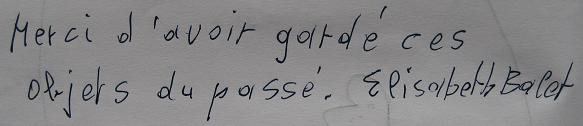 Merci d'avoir gardé ces
objets du passé. Elisabeth Balet